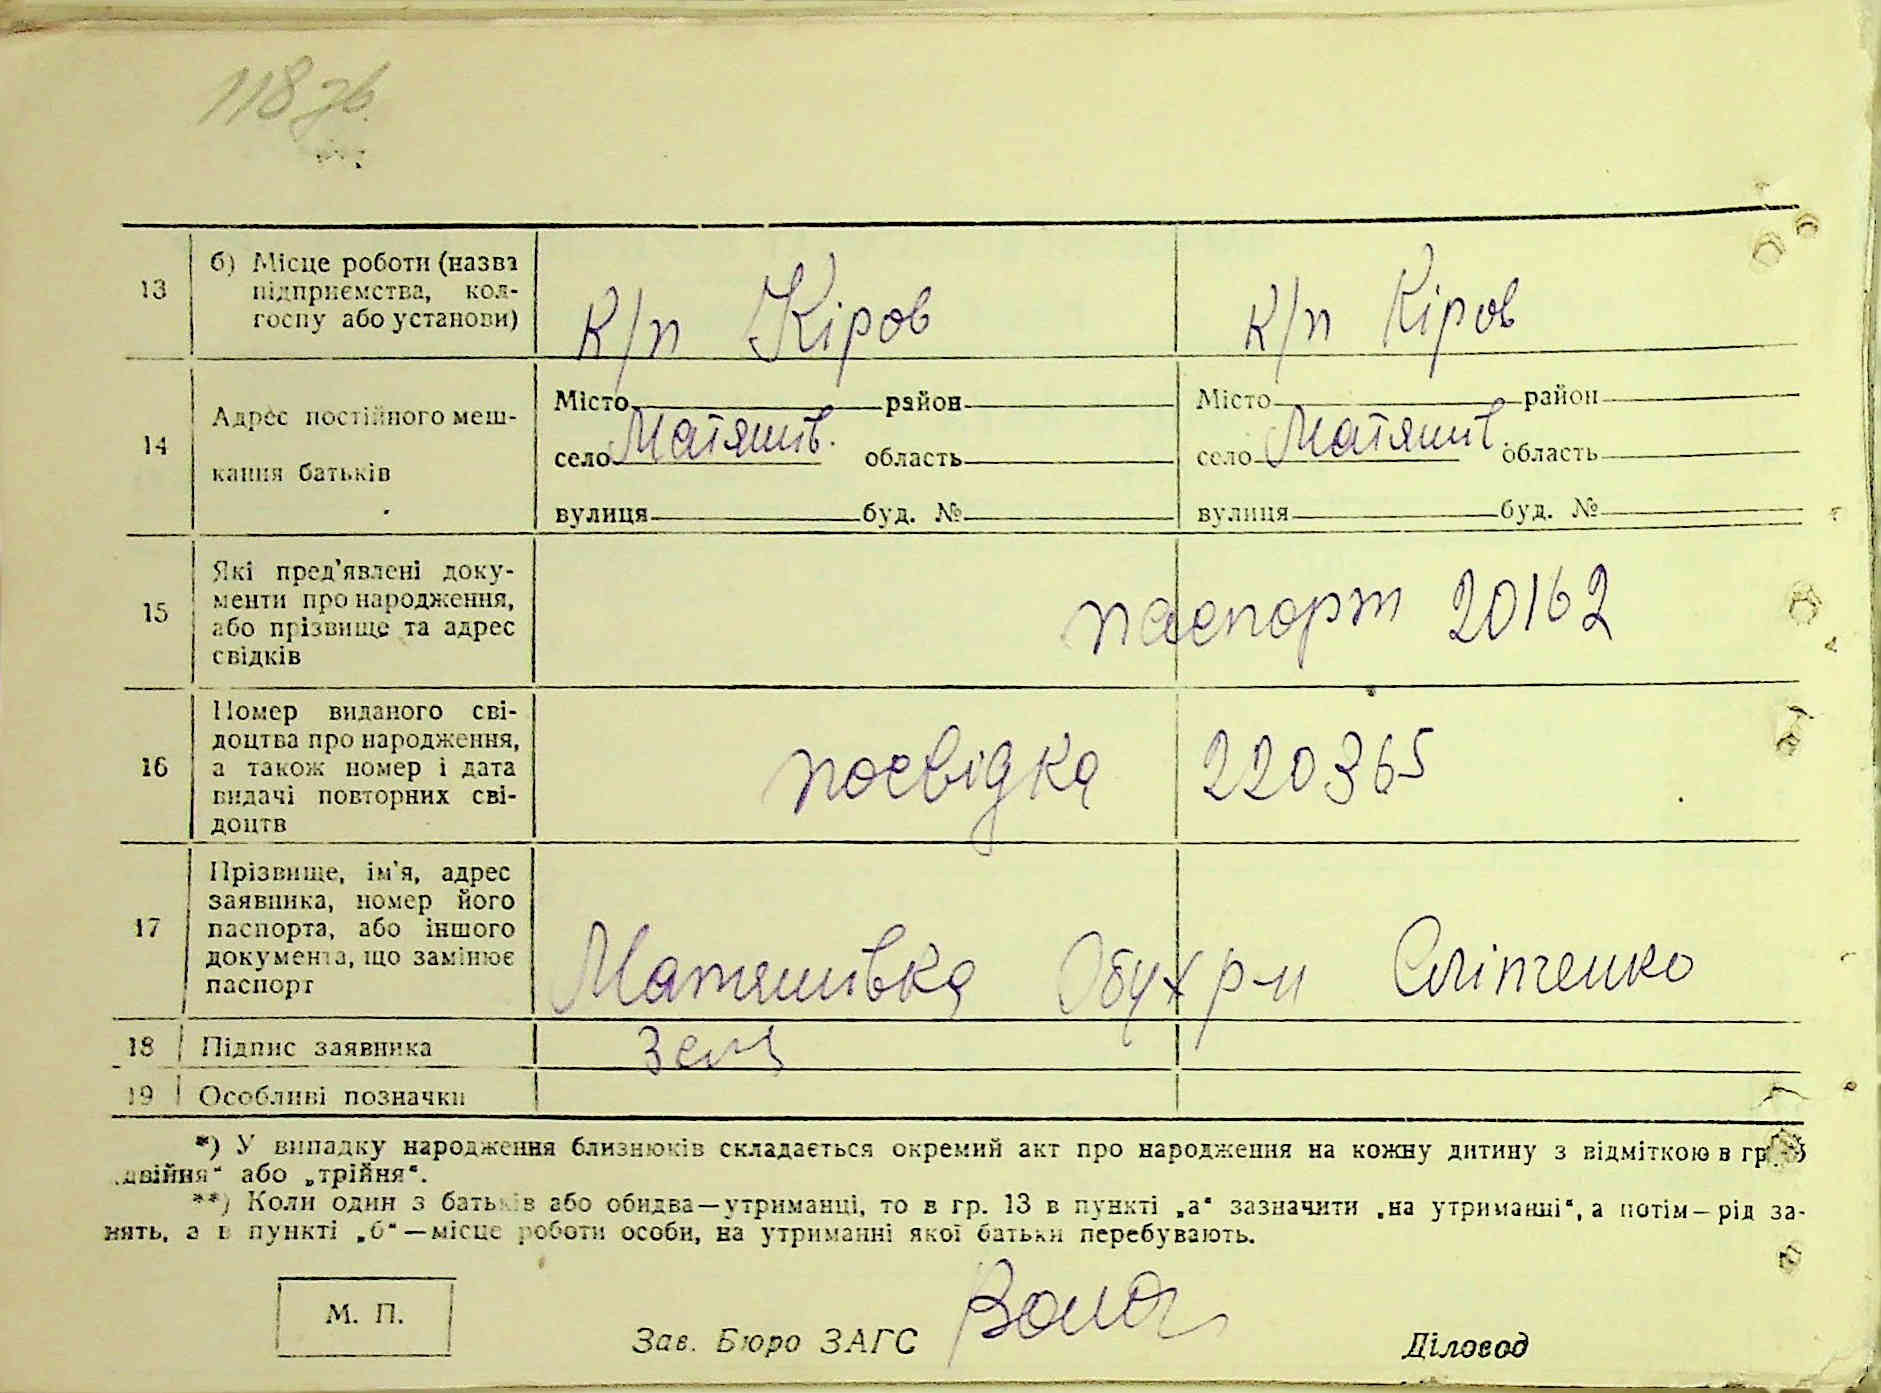 118 зв.
13
б) Місце роботи (назва
підприємства, кол-
госпу або установи)
к/п Кіров
к/п Кіров
14
Адрес постійного меш-
кання батьків
Місто район
село Матяшів. область
вулиця буд. №
Місто район
село Матяшів. область
вулиця буд. №
15
Які пред'явлені доку-
менти про народження,
або прізвище та адрес
свідків
паспорт 20162
16
Номер виданого сві-
доцтва про народження,
а також номер і дата
видачі повторних сві-
доцтв
посвідка 220365
17
Прізвище, ім'я, адрес
заявника, номер його
паспорта, або іншого
документа, що замінює
паспорт
Матяшівка Обух р-н Сліпченко
18
Підпис заявника
19
Особливі позначки
*) У випадку народження близнюків складається окремий акт про народження на кожну дитину з відміткою в гр.
„двійня“ або „трійня“.
**) Коли один з батьків або обидва—утриманці, то в гр. 13 в пункті „а“ зазначити „на утриманні“, а потім—рід за-
нять, а в пункті „б“—місце роботи особи, на утриманні якої батьки перебувають.
М. П.
Зав. Бюро ЗАГС
Діловод